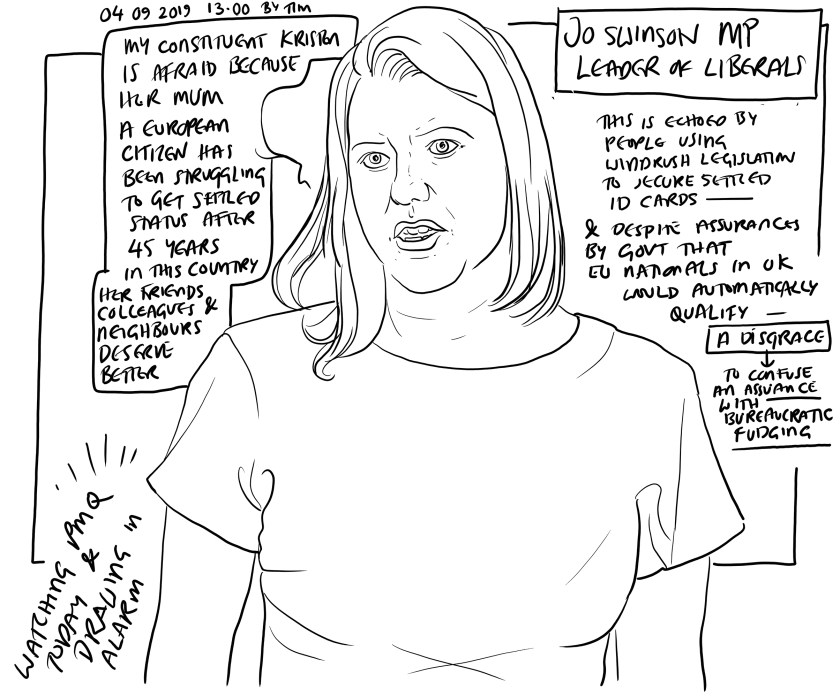 04 09 2019 13.00 BY TIM
MY CONSTITUENT KRISTEN
IS AFRAID BECAUSE
HER MUM
A EUROPEAN
CITIZEN HAS
BEEN STRUGGLING
TO GET SETTLED
STATUS AFTER
45 YEARS
IN THIS COUNTRY
HER FRIENDS
COLLEAGUES &
NEIGHBOURS
DESERVE
BETTER
JO SWINSON MP
LEADER OF LIBERALS
THIS IS ECHOED BY
PEOPLE USING
WINDRUSH LEGISLATION
TO SECURE SETTLED
ID CARDS —
& DESPITE ASSURANCES
BY GOVT THAT
EU NATIONALS IN UK
WOULD AUTOMATICALLY
QUALIFY —
A DISGRACE
TO CONFUSE
AN ASSURANCE
WITH
BUREAUCRATIC
FUDGING
WATCHING PMQ
TODAY &
DRAWING IN
ALARM